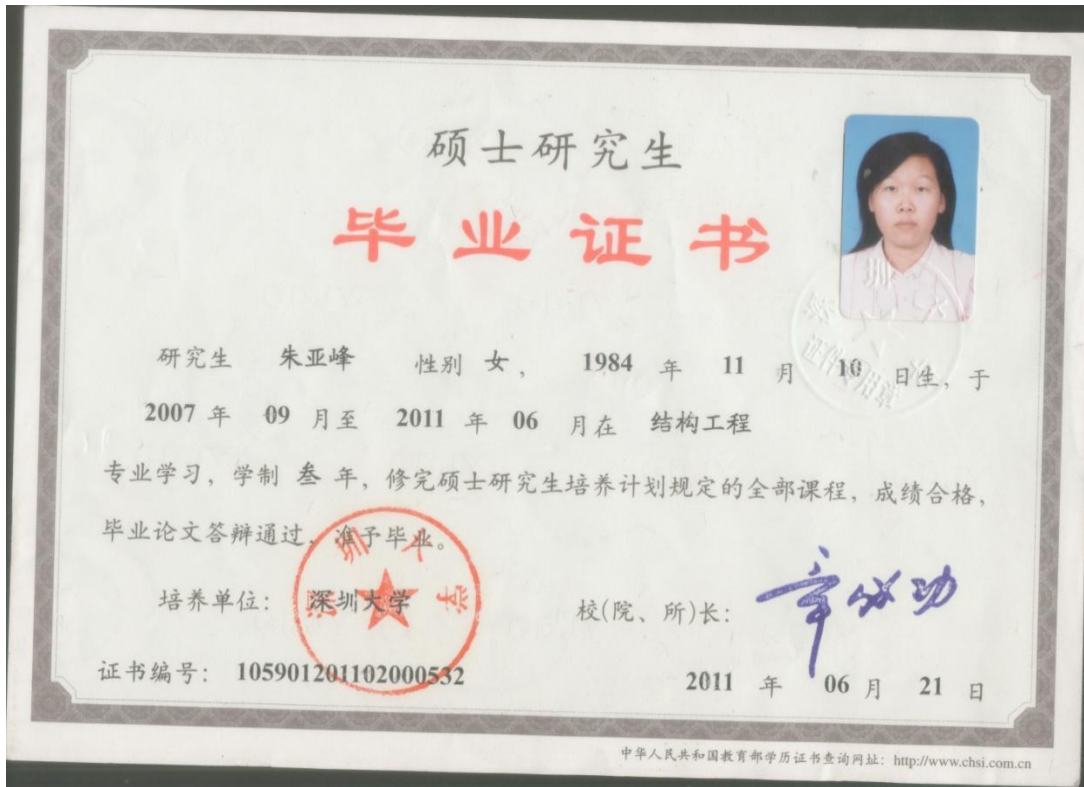 硕士研究生
毕业证书
研究生 朱亚峰 性别 女， 1984 年 11 月 10 日生，于
2007 年 09 月至 2011 年 06 月在 结构工程
专业学习，学制 叁 年，修完硕士研究生培养计划规定的全部课程，成绩合格，
毕业论文答辩通过，准予毕业。
培养单位： 深圳大学
深圳大学
校(院、所)长： 章必功
证书编号： 105901201102000532
2011 年 06 月 21 日
深圳大学
证件专用章
中华人民共和国教育部学历证书查询网址：http://www.chsi.com.cn